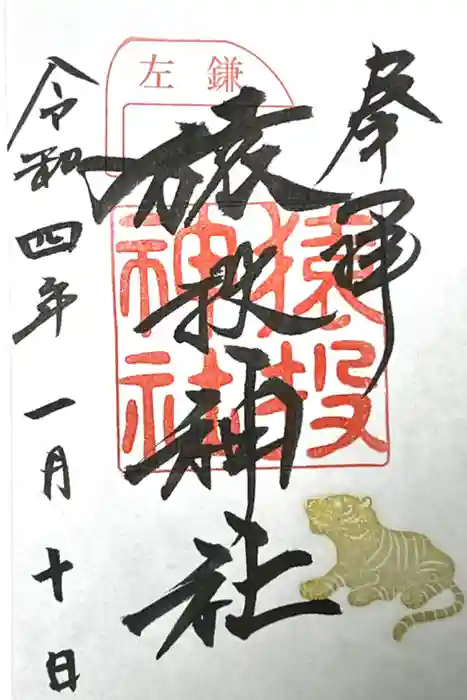 奉拝
左鎌
猿投神社
猿投神社
令和四年一月十日